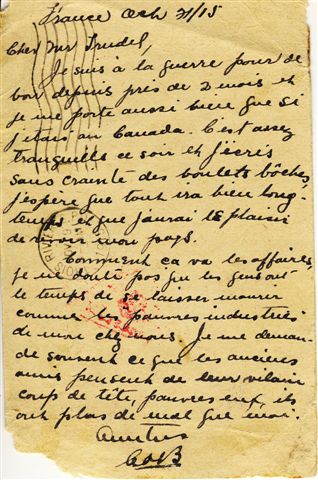 France Oct 31/15
Cher Mr Trudel,
Je suis à la guerre pour de
bon depuis près de 2 mois et
je me porte aussi bien que si
j'étais au Canada. C'est assez
tranquille ce soir et j'écris
sans crainte des boulets bôches,
j'espère que tout ira bien long-
temps et que j'aurai le plaisir
de revoir mon pays.
Comment ça va les affaires,
je ne doute pas que les gens ont
le temps de se laisser mourir
comme les pauvres industries
de mon chez nous. Je me deman-
de souvent ce que les anciens
amis pensent de leur vilain
coup de tête, pauvres eux, ils
ont plus de mal que moi.